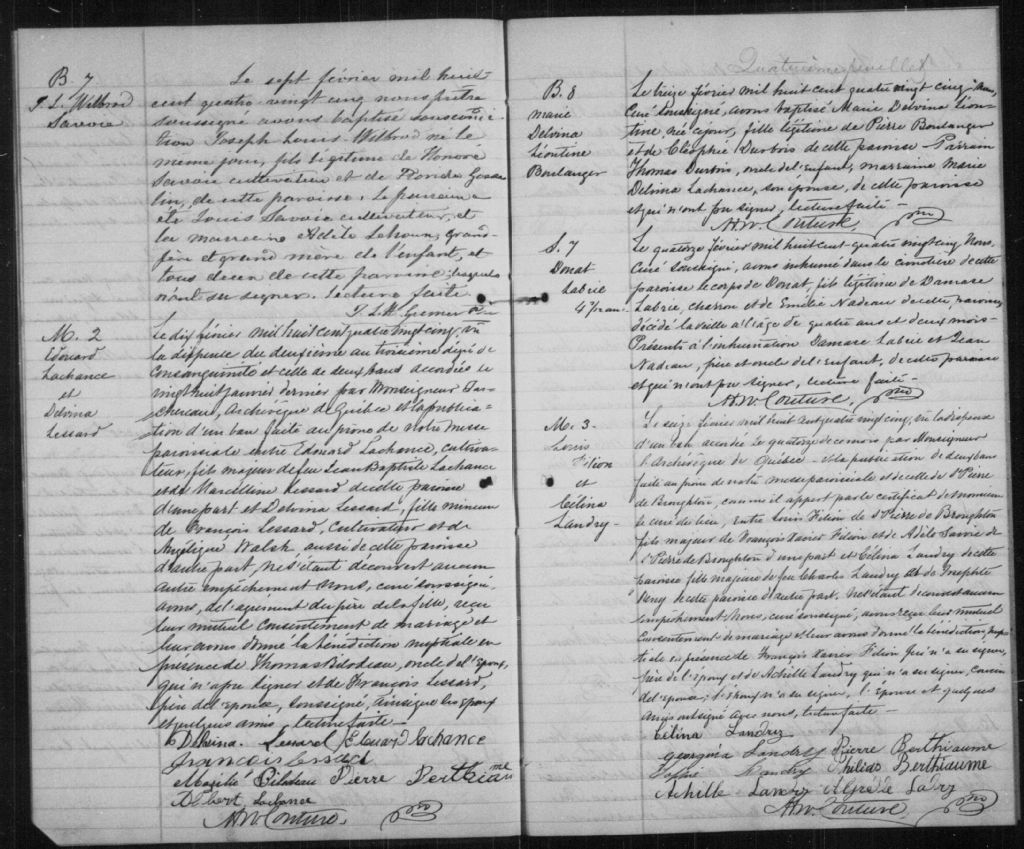 B. 7
J. L. Wilbrod
Savoie
Le sept février mil huit
cent quatre-vingt cinq nous prêtre
soussigné avons baptisé sous condi
tion Joseph Louis Wilbrod né le
même jour, fils légitime de Honoré
Savoie cultivateur et de Gosse
lin, de cette paroisse. Le parrain a
été Louis Savoie cultivateur, et
la marraine Adèle Lehoux, grand-
père et grand mère de l'enfant, et
tous deux de cette paroisse; lesquels
n'ont su signer. Lecture faite
M. 2
Edouard
Lachance
et
Delvina
Lessard
Le dix février mil huit cent quatre vingt cinq, vu
la dispense du deuxième au troisième degré de
consanguinité et celle de deux bans accordées le
vingt huit janvier dernier par Monseigneur Tas-
chereau, Archevêque de Québec et la publica-
tion d'un ban faite au prône de notre messe
paroissiale entre Edouard Lachance, cultiva-
teur, fils majeur de feu Jean Baptiste Lachance
et de Marcelline Lessard de cette paroisse
d'une part et Delvina Lessard, fille mineure
de François Lessard, cultivateur et de
Angélique Walsh aussi de cette paroisse
d'autre part, ne s'étant découvert aucun
autre empêchement nous, curé soussigné
avons, de l'agrément du père de la fille, reçu
leur mutuel consentement de mariage et
leur avons donné la bénédiction nuptiale en
présence de Thomas Bilodeau, oncle de l'époux,
qui n'a pu signer et de François Lessard,
père de l'épouse, soussigné, ainsi que les époux
et quelques amis. lecture faite -
Delvina Lessard Edouard Lachance
François Lessard
Bilodeau Pierre Berthiaume
Lachance
A. W. Couture, ptre
Quatrième feuillet
B. 8
Marie
Delvina
Léontine
Boulanger
Le treize février mil huit cent quatre vingt cinq, Nous,
Curé Soussigné, avons baptisé Marie Delvina Léon-
tine, née ce jour, fille légitime de Pierre Boulanger
et de Cléophée de cette paroisse - Parrain
Thomas oncle de l'enfant, marraine Marie
Delvina Lachance, son épouse, de cette paroisse
et qui n'ont pu signer, lecture faite -
A. W. Couture, ptre
S. 7
Donat
Labrie
4 ans
Le quatorze février mil huit cent quatre vingt cinq, Nous,
Curé Soussigné, avons inhumé dans le cimetière de cette
paroisse le corps de Donat, fils légitime de Damase
Labrie, charron et de Emilie Nadeau de cette paroisse,
décédé la veille à l'âge de quatre ans et deux mois -
Présents à l'inhumation Damase Labrie et Jean
Nadeau, père et oncle de l'enfant, de cette paroisse
et qui n'ont pu signer, lecture faite -
A. W. Couture, ptre
M. 3.
Louis
Filion
et
Célina
Landry
Le seize février mil huit cent quatre vingt cinq, vu la dispense
d'un ban accordée le quatorze de ce mois par Monseigneur
l'Archevêque de Québec - et la publication de deux bans
faite au prône de notre messe paroissiale et de celle de St Pierre
de Broughton, comme il appert par le certificat de Monsieur
le curé du lieu, entre Louis Filion de St Pierre de Broughton
fils majeur de François Xavier Filion et de Adèle Savoie de
St Pierre de Broughton d'une part et Célina Landry de cette
paroisse fille majeure de feu Charles Landry et de Josephte
de cette paroisse d'autre part. ne s'étant découvert aucun
empêchement Nous, curé soussigné, avons reçu leur mutuel
consentement de mariage et leur avons donné la bénédiction nup-
tiale en présence de François Xavier Filion qui n'a su signer,
père de l'époux et de Achille Landry qui n'a su signer, cousin
de l'épouse; l'époux n'a su signer, l'épouse et quelques
amis ont signé avec nous, lecture faite -
Célina Landry
Georgina Landry Pierre Berthiaume
Landry Philias Berthiaume
Achille Landry Landry
A. W. Couture, ptre